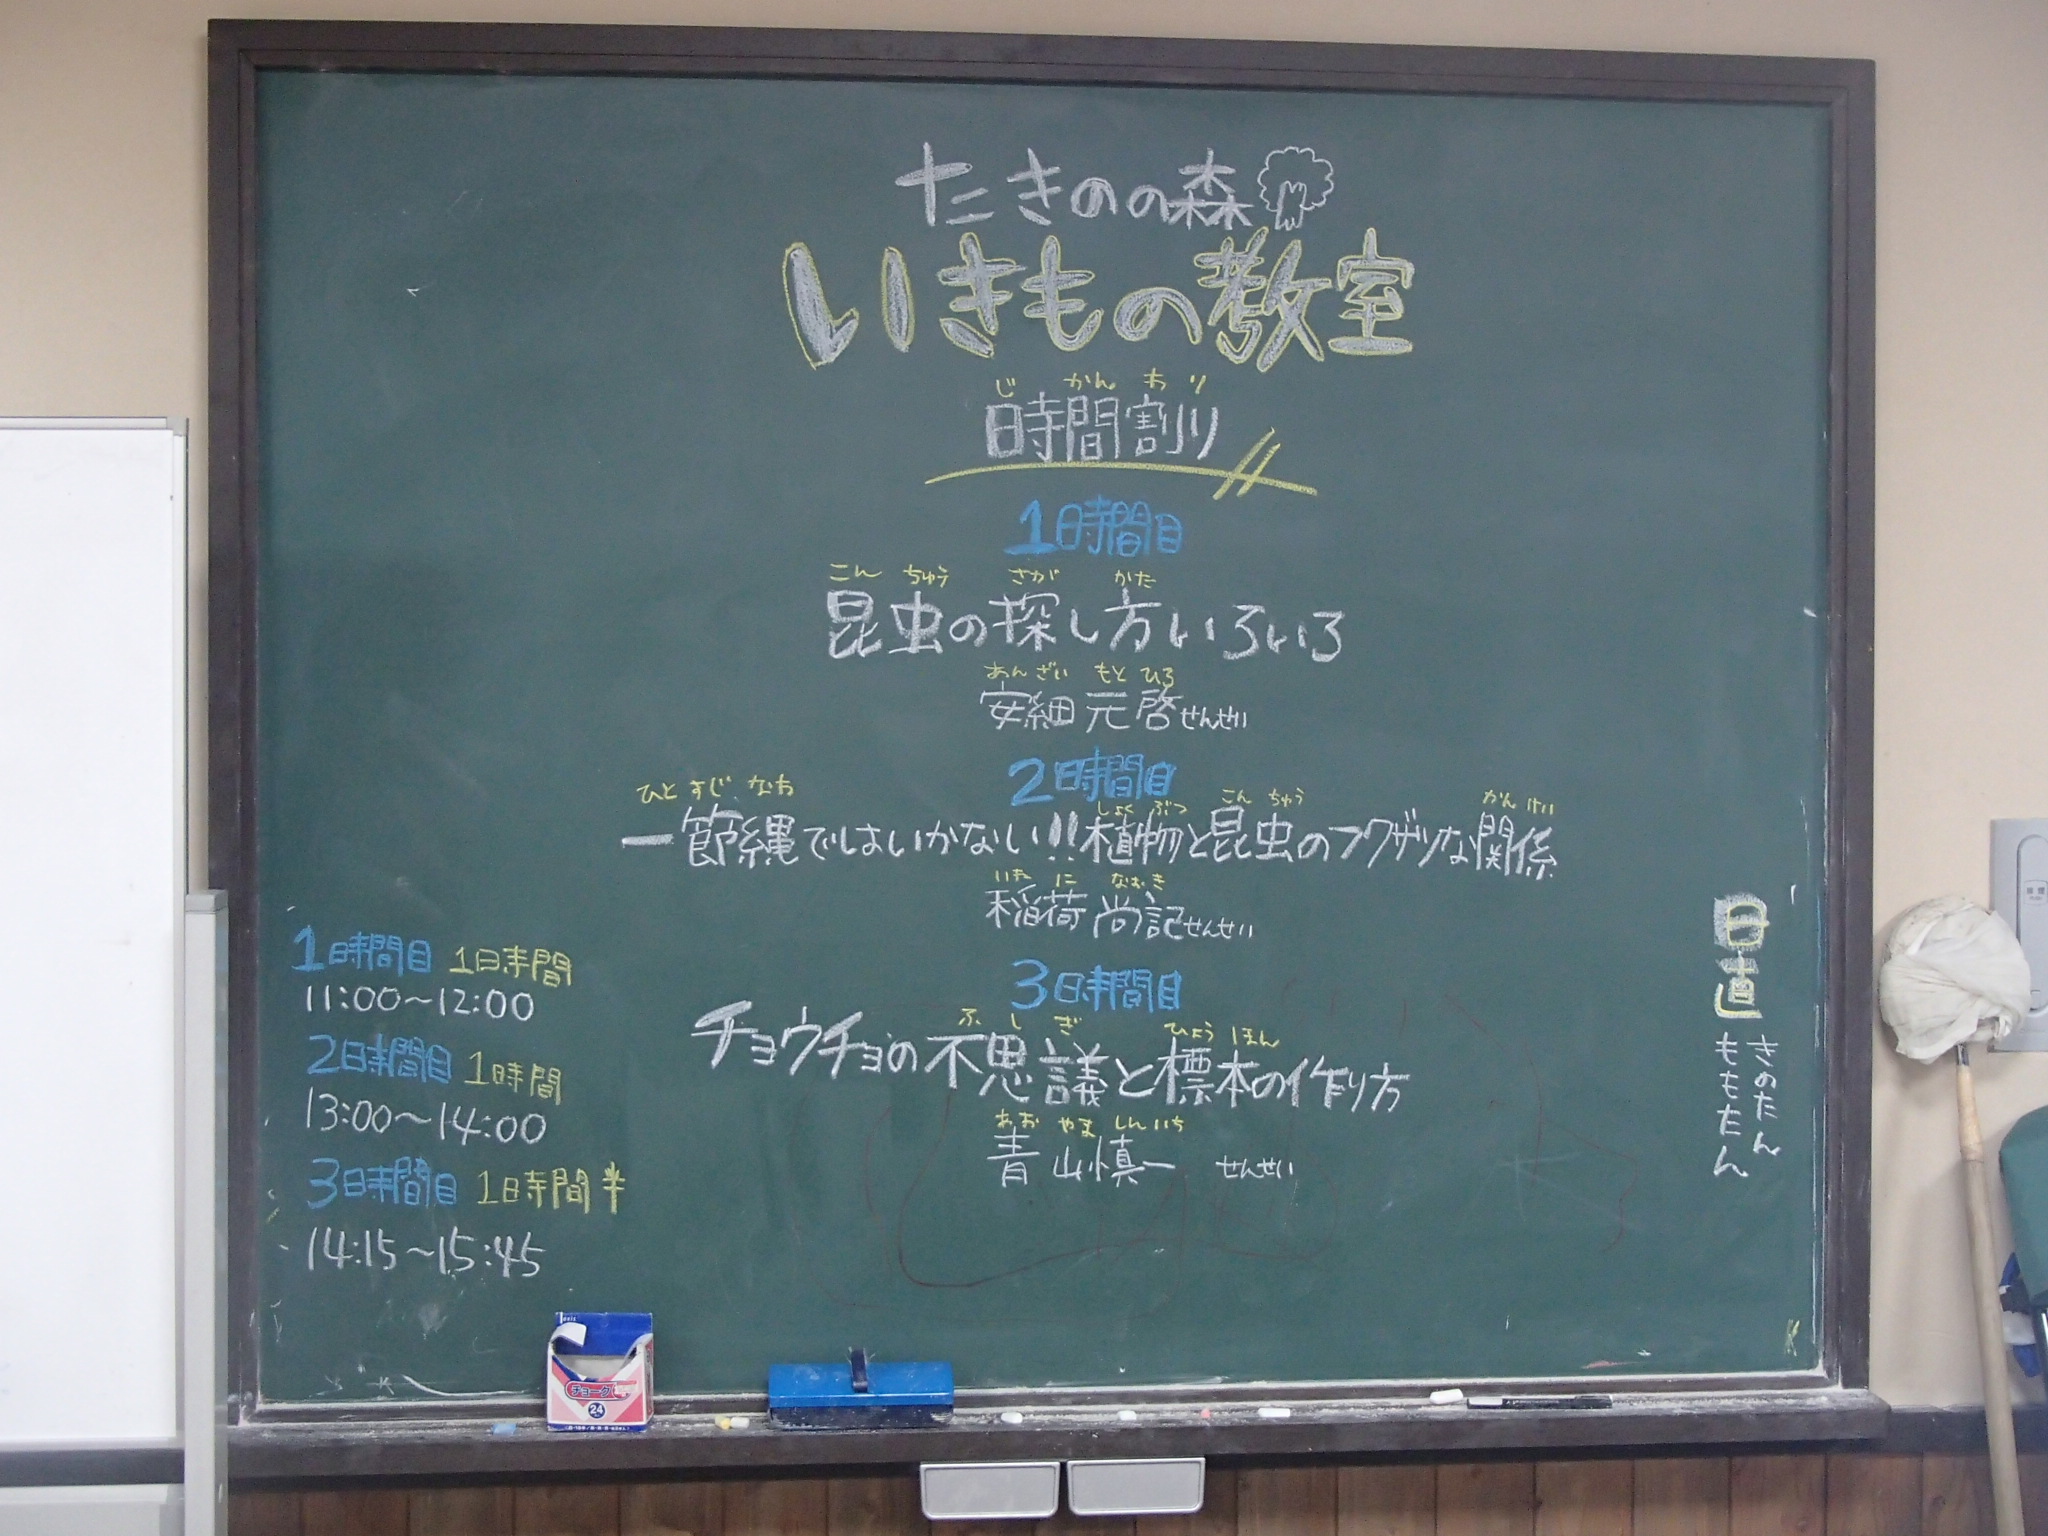 たきのの森
いきもの教室
じ かん わ り
時間割り
1時間目
こん ちゅう さが かた
昆虫の探し方いろいろ
あん ざい もと ひろ
安細 元啓せんせい
2時間目
ひと すじ なわ しょく ぶつ こん ちゅう かん けい
一節縄ではいかない!!植物と昆虫のフクザツな関係
いな に なおき
稲荷 尚記せんせい
3時間目
ふ し ぎ ひょう ほん
チョウチョの不思議と標本の作り方
あお やま しん いち
青山慎一 せんせい
1時間目 1時間
11:00〜12:00
2時間目 1時間
13:00〜14:00
3時間目 1時間半
14:15〜15:45
日直
きのたん
ももたん
チョーク
24